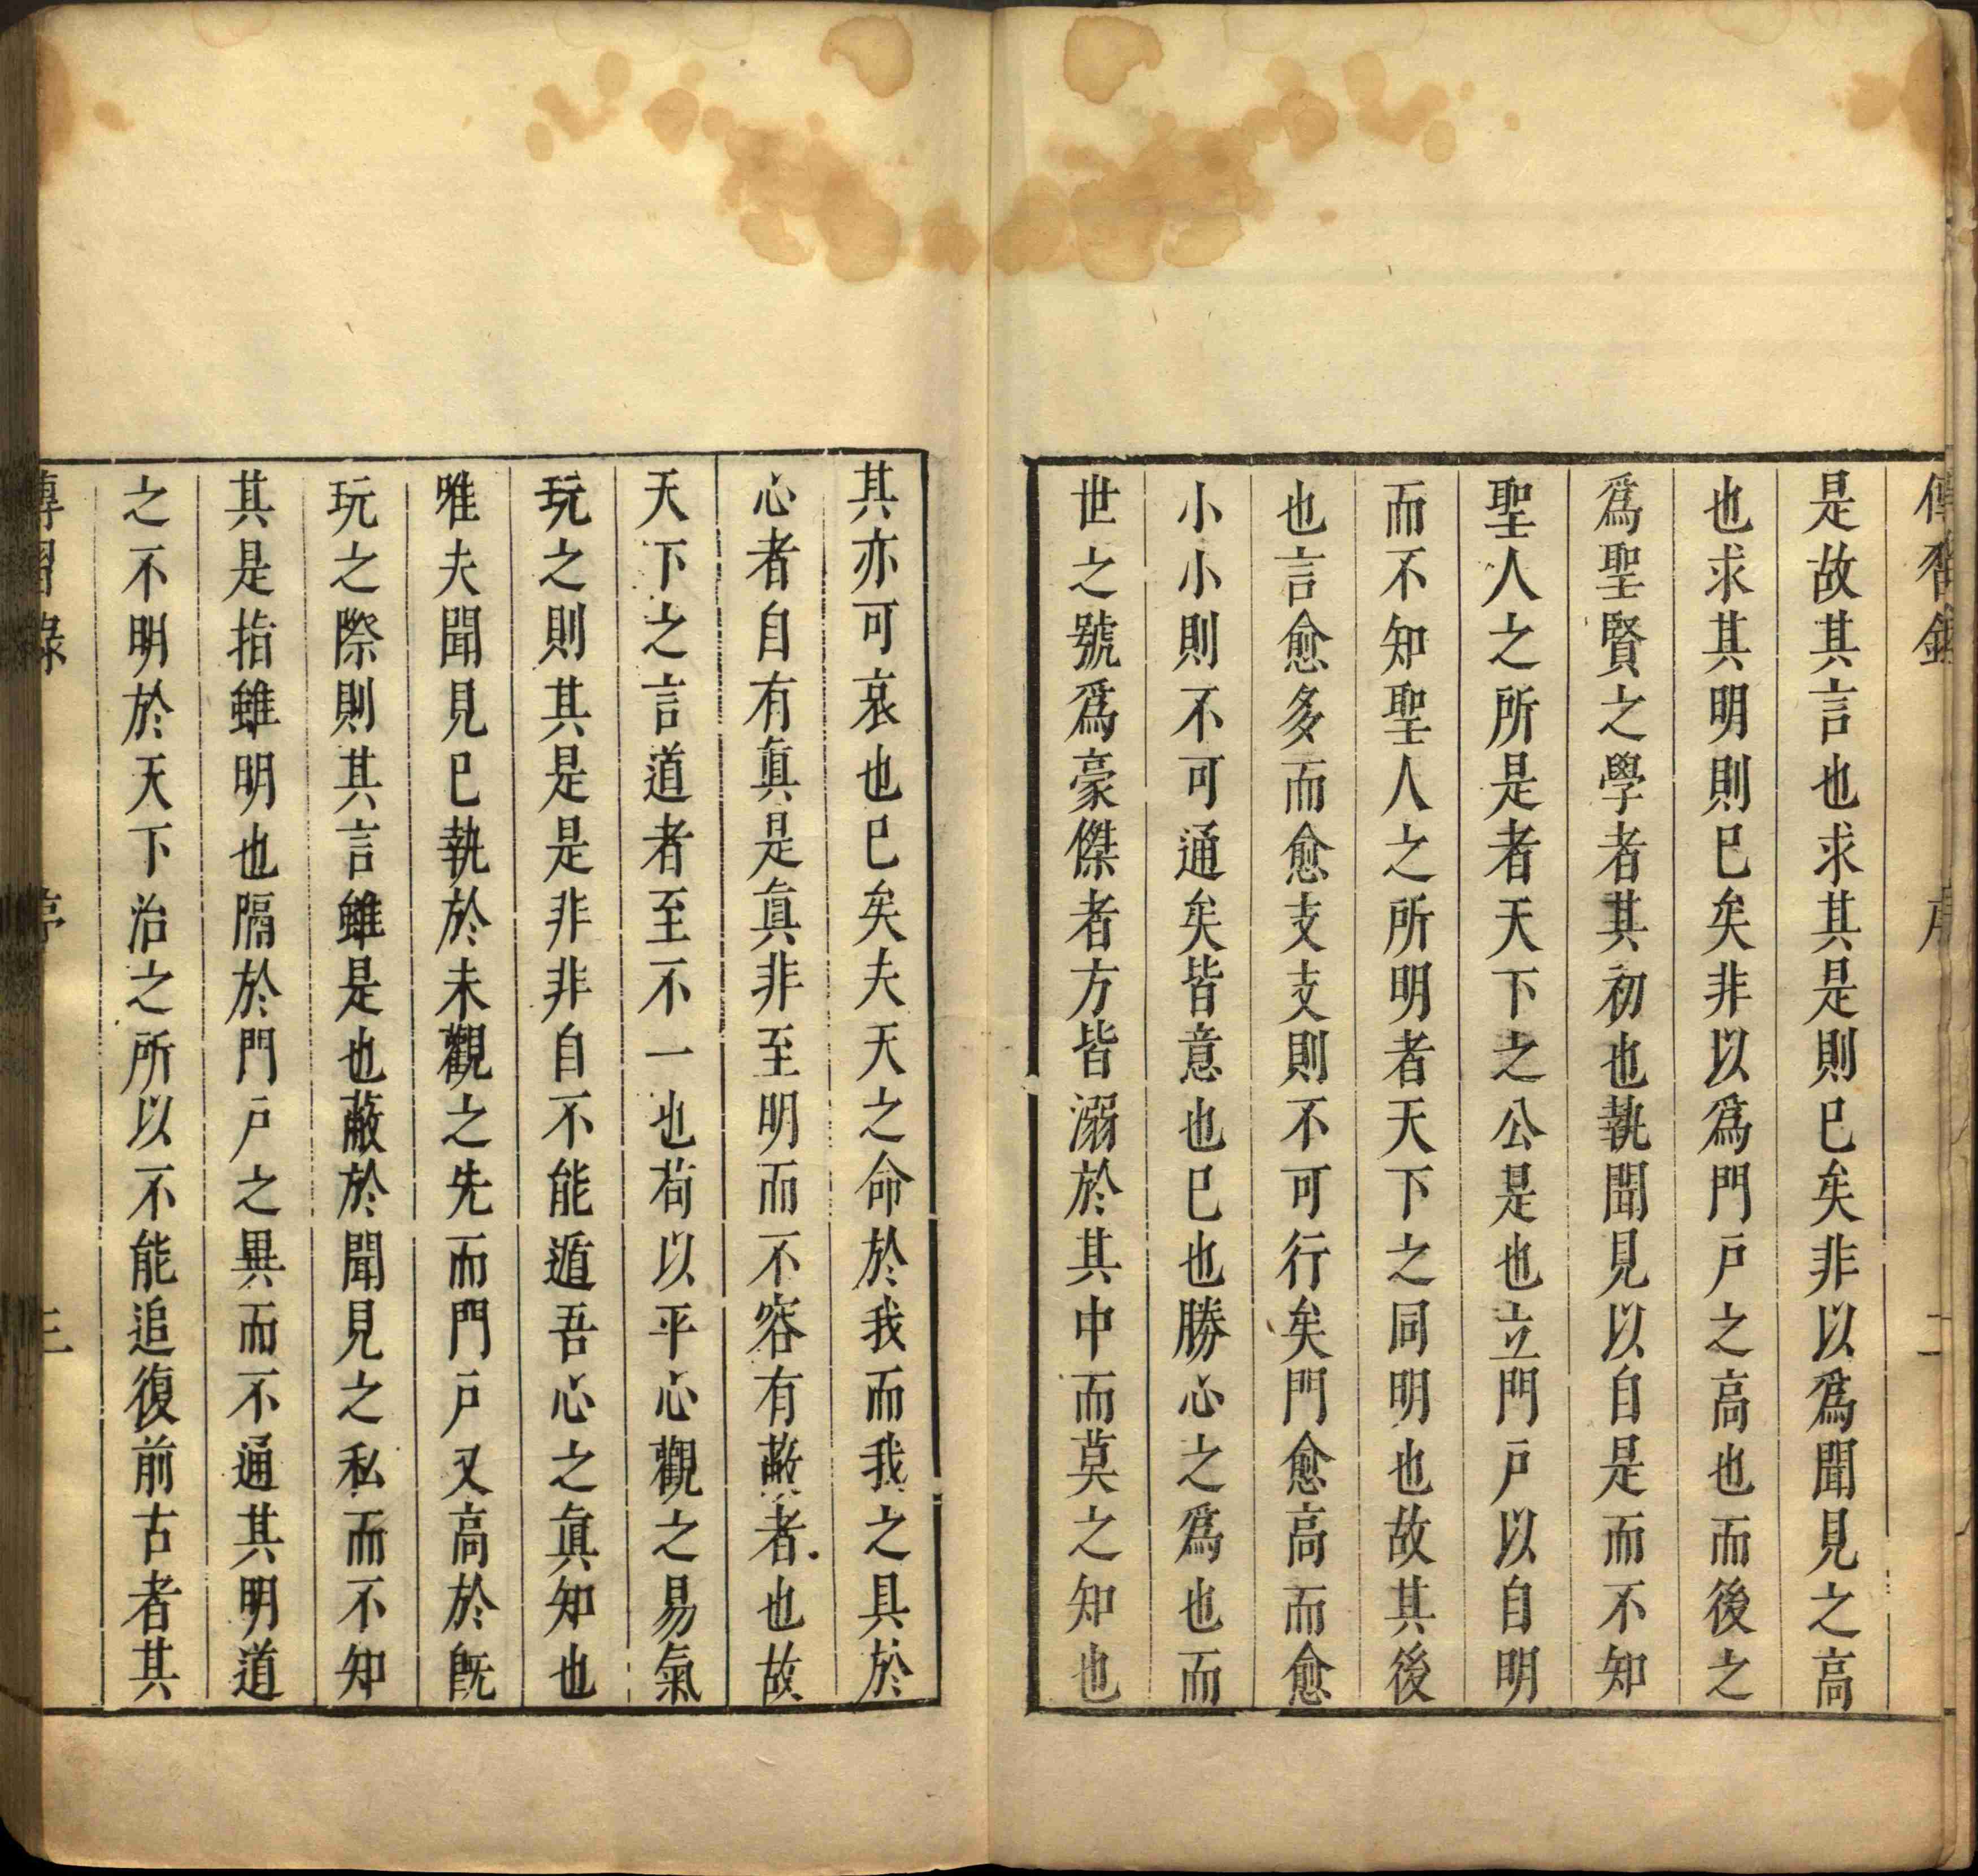 傳習錄 序 二
是故其言也求其是則已矣非以爲聞見之高
也求其明則已矣非以爲門戶之高也而後之
爲聖賢之學者其初也執聞見以自是而不知
聖人之所是者天下之公是也立門戶以自明
而不知聖人之所明者天下之同明也故其後
也言愈多而愈支支則不可行矣門愈高而愈
小小則不可通矣皆意也已也勝心之爲也而
世之號爲豪傑者方皆溺於其中而莫之知也
其亦可哀也已矣夫天之命於我而我之具於
心者自有眞是眞非至明而不容有蔽者也故
天下之言道者至不一也苟以平心觀之易氣
玩之則其是是非非自不能遁吾心之眞知也
唯夫聞見已執於未觀之先而門戶又高於旣
玩之際則其言雖是也蔽於聞見之私而不知
其是指雖明也隔於門戶之異而不通其明道
之不明於天下治之所以不能追復前古者其
傳習錄 序 三